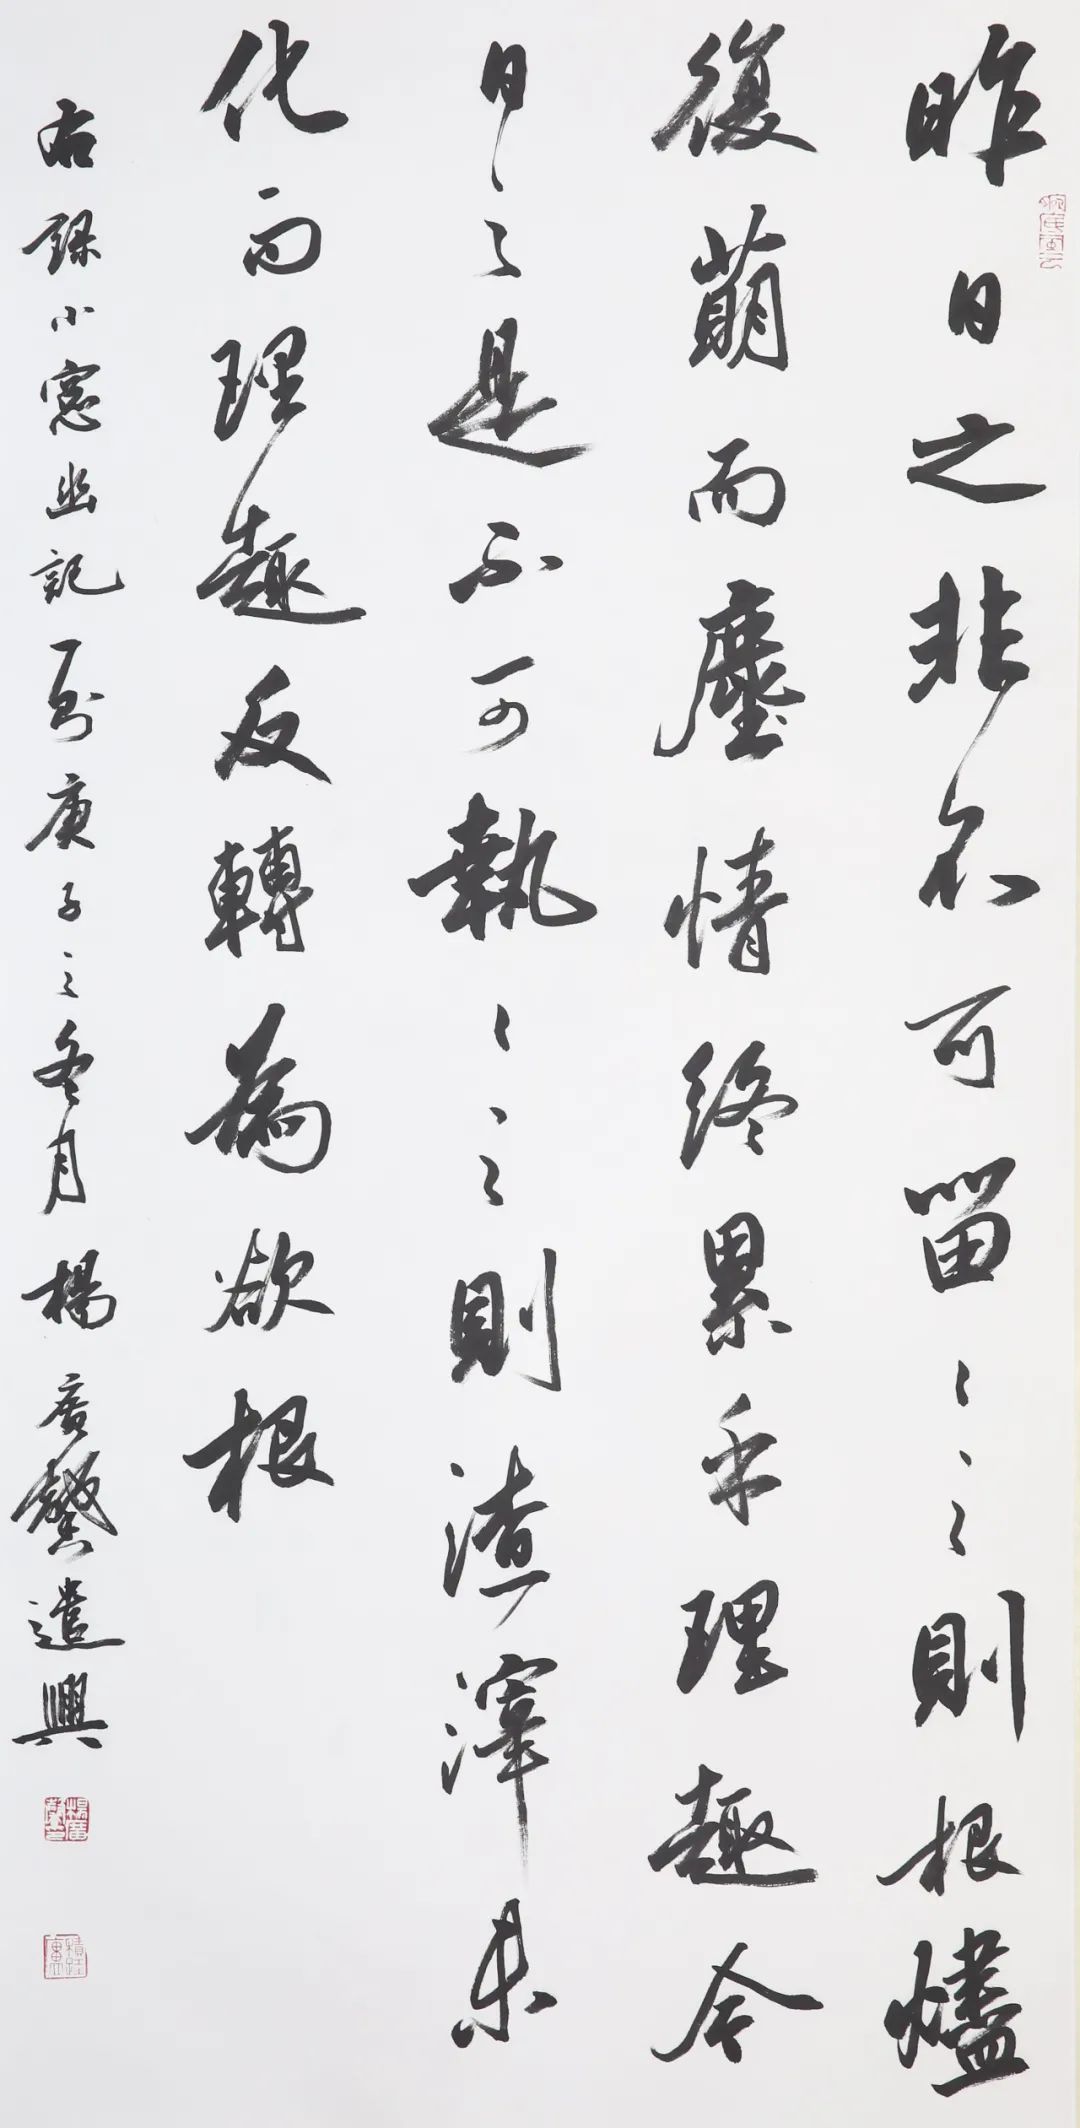 昨日之非不可留〻之則根燼
復萌而塵情終累乎理趣今
日之是不可執〻之則渣滓未
化而理趣反轉為欲根
右録小窓幽記一則庚子之冬月楊廣馨遣興